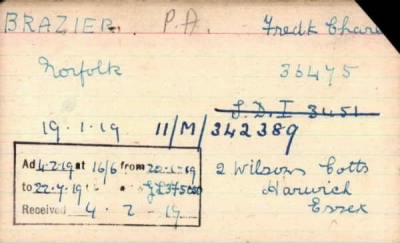 BRAZIER. P.A. Fredk Char
Norfolk 36475
S.D.I 3451
19.1.19 11/M/342389
Ad 4.2.19 at 16/6 from 20.1.19
to 22.4.19
Received 4 - 2 - 19
2 Wilsons Cotts
Harwich
Essex